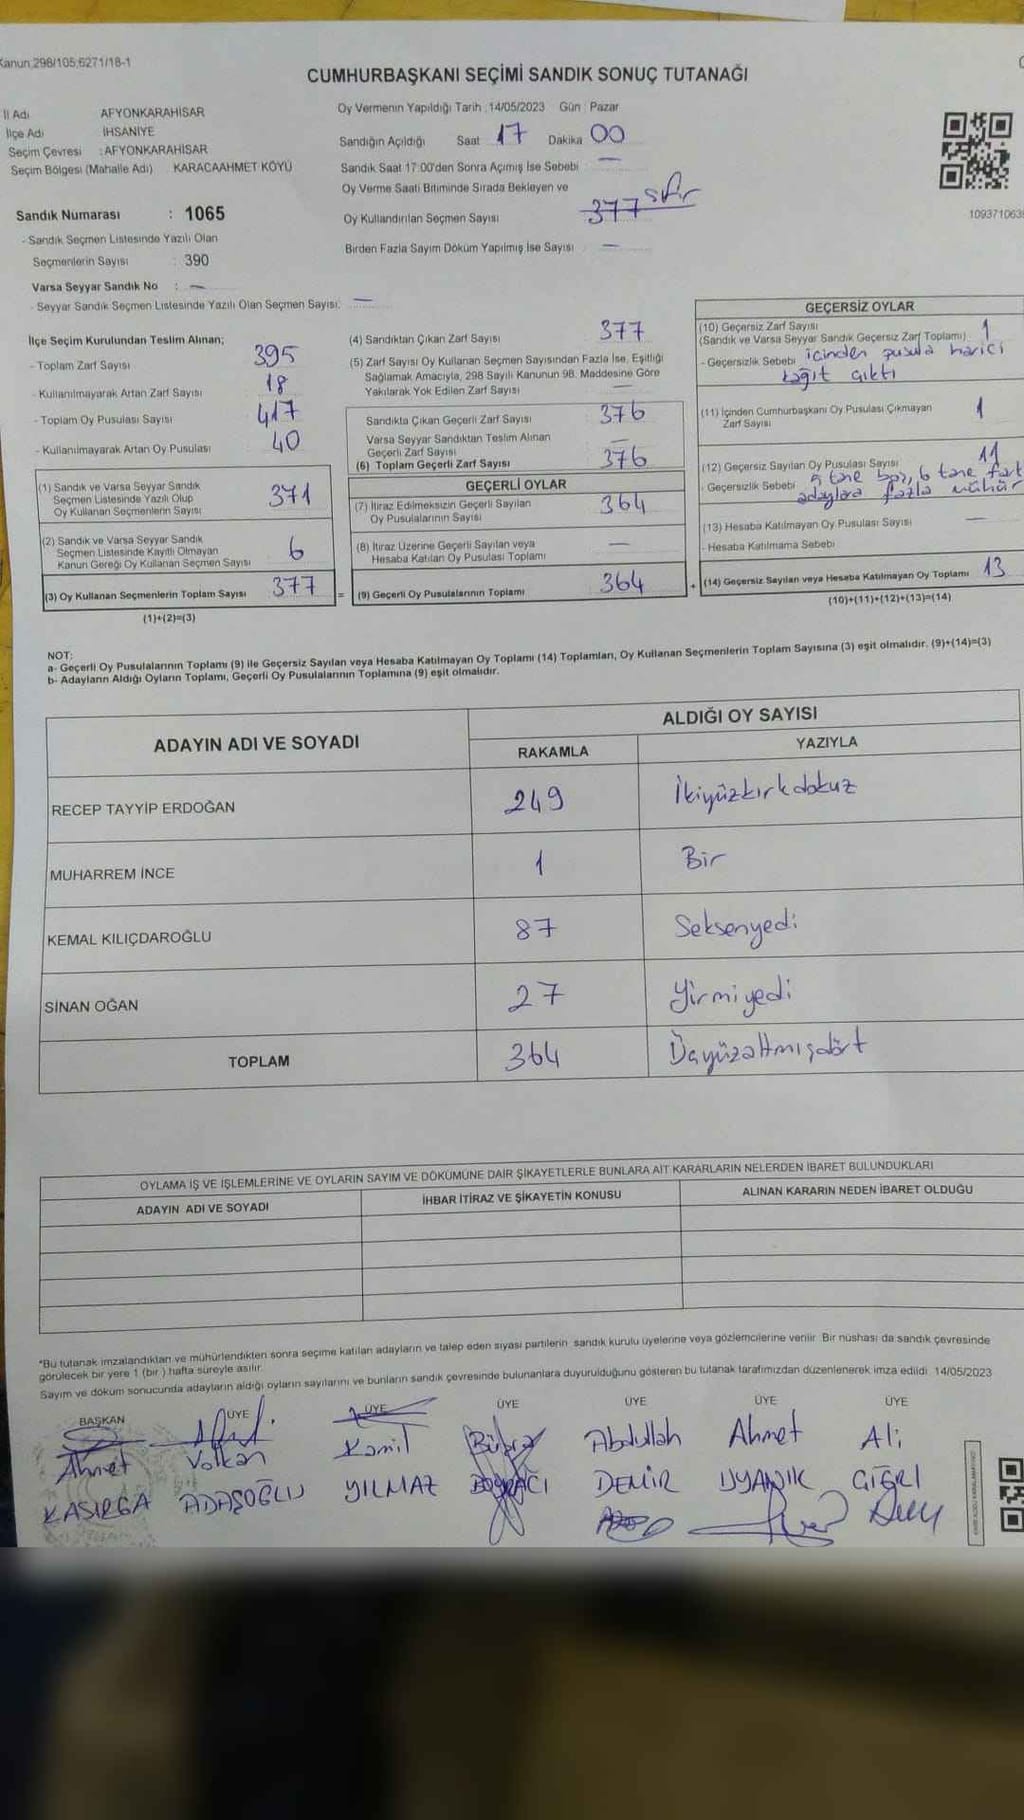 Kanun:298/105;6271/18-1
CUMHURBAŞKANI SEÇİMİ SANDIK SONUÇ TUTANAĞI
İl Adı AFYONKARAHİSAR
İlçe Adı İHSANİYE
Seçim Çevresi : AFYONKARAHİSAR
Seçim Bölgesi (Mahalle Adı) KARACAAHMET KÖYÜ
Oy Vermenin Yapıldığı Tarih :14/05/2023 Gün : Pazar
Sandığın Açıldığı Saat 17 Dakika 00
Sandık Saat 17:00'den Sonra Açımış İse Sebebi —
Oy Verme Saati Bitiminde Sırada Bekleyen ve
Oy Kullandırılan Seçmen Sayısı 377 sıfır
Birden Fazla Sayım Döküm Yapılmış İse Sayısı —
1093710639
Sandık Numarası : 1065
- Sandık Seçmen Listesinde Yazılı Olan
Seçmenlerin Sayısı : 390
Varsa Seyyar Sandık No : —
- Seyyar Sandık Seçmen Listesinde Yazılı Olan Seçmen Sayısı: —
İlçe Seçim Kurulundan Teslim Alınan;
- Toplam Zarf Sayısı 395
- Kullanılmayarak Artan Zarf Sayısı 18
- Toplam Oy Pusulası Sayısı 417
- Kullanılmayarak Artan Oy Pusulası 40
(1) Sandık ve Varsa Seyyar Sandık
Seçmen Listesinde Yazılı Olup
Oy Kullanan Seçmenlerin Sayısı 371
(2) Sandık ve Varsa Seyyar Sandık
Seçmen Listesinde Kayıtlı Olmayan
Kanun Gereği Oy Kullanan Seçmen Sayısı 6
(3) Oy Kullanan Seçmenlerin Toplam Sayısı 377
(1)+(2)=(3)
(4) Sandıktan Çıkan Zarf Sayısı 377
(5) Zarf Sayısı Oy Kullanan Seçmen Sayısından Fazla İse, Eşitliği
Sağlamak Amacıyla, 298 Sayılı Kanunun 98. Maddesine Göre
Yakılarak Yok Edilen Zarf Sayısı —
Sandıkta Çıkan Geçerli Zarf Sayısı 376
Varsa Seyyar Sandıktan Teslim Alınan
Geçerli Zarf Sayısı —
(6) Toplam Geçerli Zarf Sayısı 376
GEÇERLİ OYLAR
(7) İtiraz Edilmeksizin Geçerli Sayılan
Oy Pusulalarının Sayısı 364
(8) İtiraz Üzerine Geçerli Sayılan veya
Hesaba Katılan Oy Pusulası Toplamı —
= (9) Geçerli Oy Pusulalarının Toplamı 364
GEÇERSİZ OYLAR
(10) Geçersiz Zarf Sayısı
(Sandık ve Varsa Seyyar Sandık Geçersiz Zarf Toplamı) 1
- Geçersizlik Sebebi içinden pusula harici
kağıt çıktı
(11) İçinden Cumhurbaşkanı Oy Pusulası Çıkmayan
Zarf Sayısı 1
(12) Geçersiz Sayılan Oy Pusulası Sayısı 11
- Geçersizlik Sebebi 5 tane boş, 6 tane fark
adaylara fazla mühür
(13) Hesaba Katılmayan Oy Pusulası Sayısı —
- Hesaba Katılmama Sebebi
+ (14) Geçersiz Sayılan veya Hesaba Katılmayan Oy Toplamı 13
(10)+(11)+(12)+(13)=(14)
NOT:
a- Geçerli Oy Pusulalarının Toplamı (9) ile Geçersiz Sayılan veya Hesaba Katılmayan Oy Toplamı (14) Toplamları, Oy Kullanan Seçmenlerin Toplam Sayısına (3) eşit olmalıdır. (9)+(14)=(3)
b- Adayların Aldığı Oyların Toplamı, Geçerli Oy Pusulalarının Toplamına (9) eşit olmalıdır.
ADAYIN ADI VE SOYADI ALDIĞI OY SAYISI
RAKAMLA YAZIYLA
RECEP TAYYİP ERDOĞAN 249 İkiyüzkırkdokuz
MUHARREM İNCE 1 Bir
KEMAL KILIÇDAROĞLU 87 Seksenyedi
SİNAN OĞAN 27 Yirmiyedi
TOPLAM 364 Üçyüzaltmışdört
OYLAMA İŞ VE İŞLEMLERİNE VE OYLARIN SAYIM VE DÖKÜMÜNE DAİR ŞİKAYETLERLE BUNLARA AİT KARARLARIN NELERDEN İBARET BULUNDUKLARI
ADAYIN ADI VE SOYADI İHBAR İTİRAZ VE ŞİKAYETİN KONUSU ALINAN KARARIN NEDEN İBARET OLDUĞU
*Bu tutanak imzalandıktan ve mühürlendikten sonra seçime katılan adayların ve talep eden siyasi partilerin sandık kurulu üyelerine veya gözlemcilerine verilir. Bir nüshası da sandık çevresinde
görülecek bir yere 1 (bir ) hafta süreyle asılır.
Sayım ve döküm sonucunda adayların aldığı oyların sayılarını ve bunların sandık çevresinde bulunanlara duyurulduğunu gösteren bu tutanak tarafımızdan düzenlenerek imza edildi. 14/05/2023
BAŞKAN ÜYE ÜYE ÜYE ÜYE ÜYE ÜYE
Ahmet Volkan Kamil Büşra Abdullah Ahmet Ali
KASIRGA ADAŞOĞLU YILMAZ BOYRACI DEMİR UYANIK